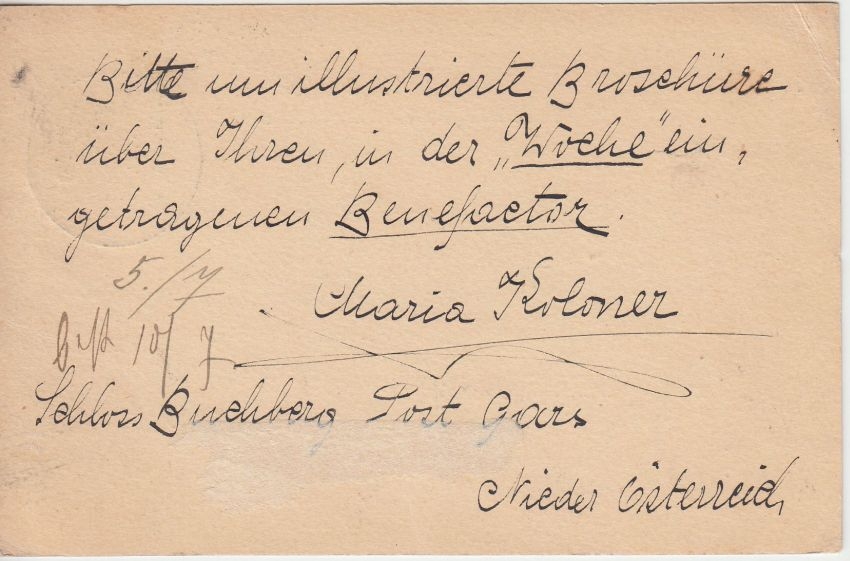 Bitte um illustrierte Broschüre
über Ihren, in der „Woche“ ein-
getragenen Benefactor.
5./7
Maria Koloner
10/7
Schloss Buchberg Post Gars
Nieder Österreich,